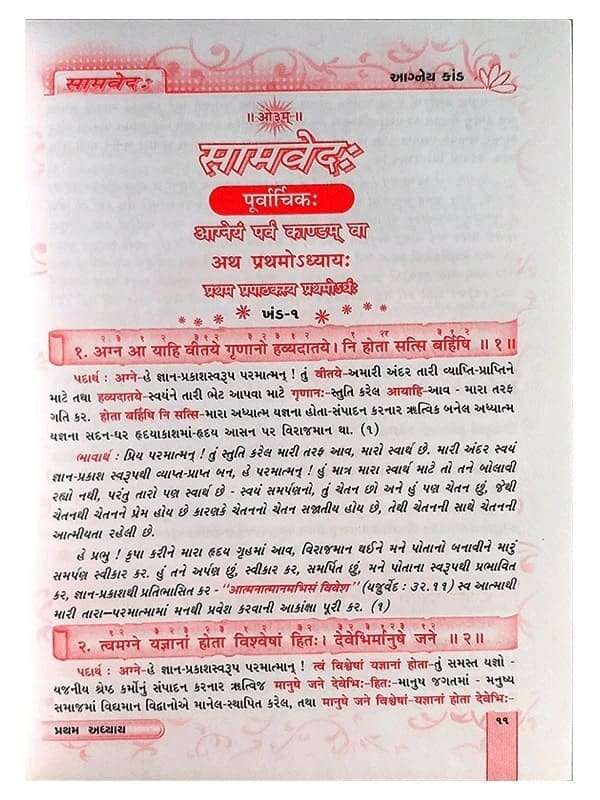 सामवेदः
આગ્નેય કાંડ
॥ओ३म्॥
सामवेदः
पूर्वार्चिकः
आग्नेयं पर्वं काण्डम् वा
अथ प्रथमोऽध्यायः
प्रथम प्रपाठकस्य प्रथमोऽर्धः
ખંડ-૧
१. अग्न आ याहि वीतये गृणानो हव्यदातये। नि होता सत्सि बर्हिषि ॥१॥
પદાર્થ : અગ્ને-હે જ્ઞાન-પ્રકાશસ્વરૂપ પરમાત્મન્ ! તું વીતયે-અમારી અંદર તારી વ્યાપ્તિ-પ્રાપ્તિને
માટે તથા હવ્યદાતયે-સ્વયંને તારી ભેટ આપવા માટે ગૃણાનઃ-સ્તુતિ કરેલ આયાહિ-આવ - મારા તરફ
ગતિ કર. હોતા બર્હિષિ નિ સત્સિ-મારા અધ્યાત્મ યજ્ઞના હોતા-સંપાદન કરનાર ઋત્વિક બનેલ અધ્યાત્મ
યજ્ઞના સદન-ઘર હૃદયાકાશમાં-હૃદય આસન પર વિરાજમાન થા. (૧)
ભાવાર્થ : પ્રિય પરમાત્મન્ ! તું સ્તુતિ કરેલ મારી તરફ આવ, મારો સ્વાર્થ છે. મારી અંદર સ્વયં
જ્ઞાન-પ્રકાશ સ્વરૂપથી વ્યાપ્ત-પ્રાપ્ત બન, હે પરમાત્મન્ ! હું માત્ર મારા સ્વાર્થ માટે તો તને બોલાવી
રહ્યો નથી, પરંતુ તારો પણ સ્વાર્થ છે - સ્વયં સમર્પણનો, તું ચેતન છો અને હું પણ ચેતન છું, જેથી
ચેતનથી ચેતનને પ્રેમ હોય છે કારણકે ચેતનનો ચેતન સજાતીય હોય છે, તેથી ચેતનની સાથે ચેતનની
આત્મીયતા રહેલી છે.
હે પ્રભુ ! કૃપા કરીને મારા હૃદય ગૃહમાં આવ, વિરાજમાન થઈને મને પોતાનો બનાવીને મારું
સમર્પણ સ્વીકાર કર. હું તને અર્પણ છું, સ્વીકાર કર, સમર્પિત છું, મને પોતાના સ્વરૂપથી પ્રભાવિત
કર, જ્ઞાન-પ્રકાશથી પ્રતિભાસિત કર - "આત્મનાત્માનમભિસં વિવેશ" (યજુર્વેદ : ૩૨.૧૧) સ્વ આત્માથી
મારી તારા-પરમાત્મામાં મનથી પ્રવેશ કરવાની આકાંક્ષા પૂરી કર. (૧)
२. त्वमग्ने यज्ञानां होता विश्वेषां हितः। देवेभिर्मानुषे जने ॥२॥
પદાર્થ : અગ્ને-હે જ્ઞાન-પ્રકાશસ્વરૂપ પરમાત્માન્ ! ત્વં વિશ્વેષાં યજ્ઞાનાં હોતા-તું સમસ્ત યજ્ઞો -
યજનીય શ્રેષ્ઠ કર્મોનું સંપાદન કરનાર ઋત્વિજ માનુષે જને દેવેભિઃ-હિતઃ-માનુષ જગતમાં - મનુષ્ય
સમાજમાં વિદ્યમાન વિદ્વાનોએ માનેલ-સ્થાપિત કરેલ, તથા માનુષે જને વિશ્વેષાં-યજ્ઞાનાં હોતા દેવેભિઃ-
પ્રથમ અધ્યાય
૧૧